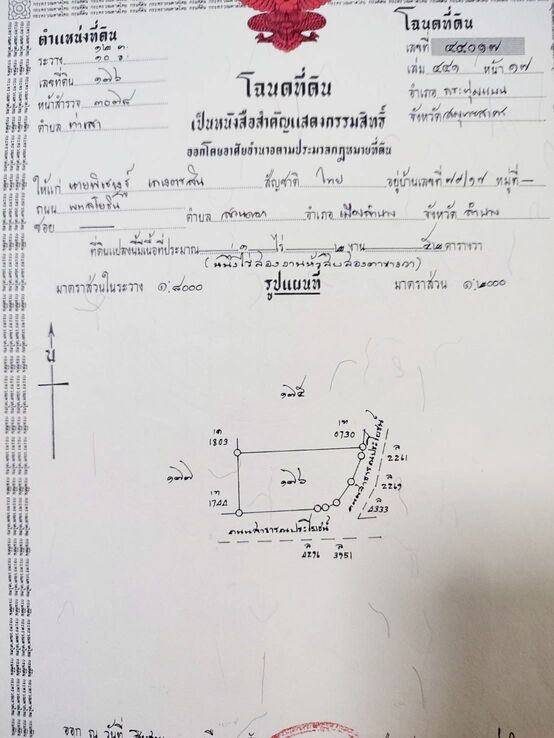 ตำแหน่งที่ดิน
ระวาง ๑๒ ค.
๑๐ ฮ.
เลขที่ดิน ๑๗๖
หน้าสำรวจ ๓๐๗๘
ตำบล ท่าเสา
โฉนดที่ดิน
เลขที่ ๔๔๐๑๗
เล่ม ๔๔๑ หน้า ๑๗
อำเภอ กระทุ่มแบน
จังหวัด สมุทรสาคร
โฉนดที่ดิน
เป็นหนังสือสำคัญแสดงกรรมสิทธิ์
ออกโดยอาศัยอำนาจตามประมวลกฎหมายที่ดิน
ให้แก่ นาย สัญชาติ ไทย อยู่บ้านเลขที่ ๗๙/๑๗ หมู่ที่ —
ถนน พหลโยธิน ตำบล สวนดอก อำเภอ เมืองลำปาง จังหวัด ลำปาง
ซอย —
ที่ดินแปลงนี้มีเนื้อที่ประมาณ ๑ ไร่ ๒ งาน ๕๒ ตารางวา
(หนึ่งไร่สองงานห้าสิบสองตารางวา)
มาตราส่วนในระวาง ๑:๔๐๐๐ รูปแผนที่ มาตราส่วน ๑:๒๐๐๐
น
๑๗๕
1803
0730
๑๗๗
๑๗๖
ถนนสาธารณประโยชน์
2261
2269
4333
1744
ถนนสาธารณประโยชน์
4296
3951
ออก ณ วันที่